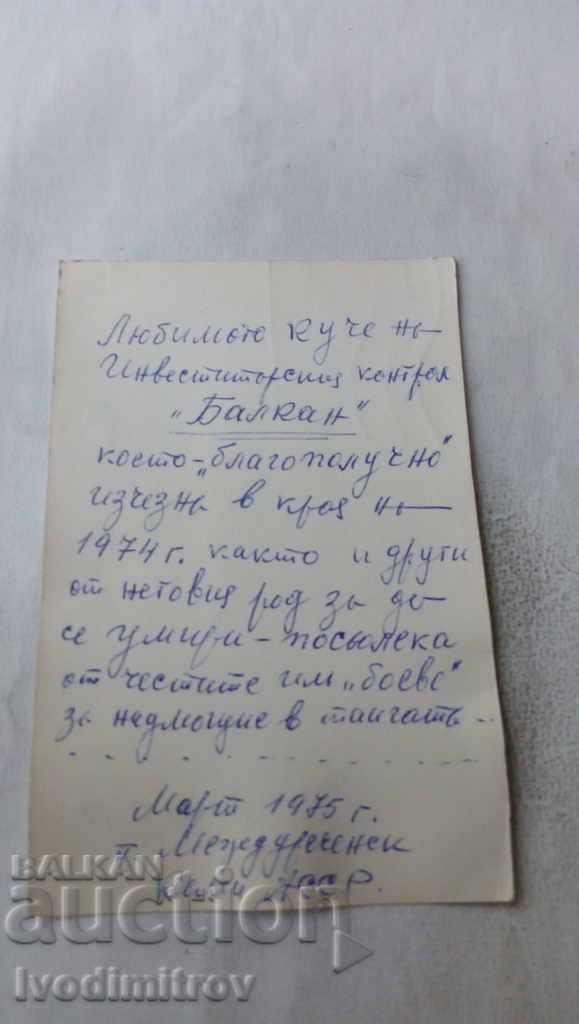 Любимото куче на
Инвеститорския контрол
„Балкан"
което-„благополучно"
изчезна в края на
1974 г. както и други
от неговия род за да
се умири-
от честите им „боеве"
за надмощие в тайгата...
Март 1975 г.
п. Междуреченск
Коми АССР.
BALKAN
auction
Ivodimitrov